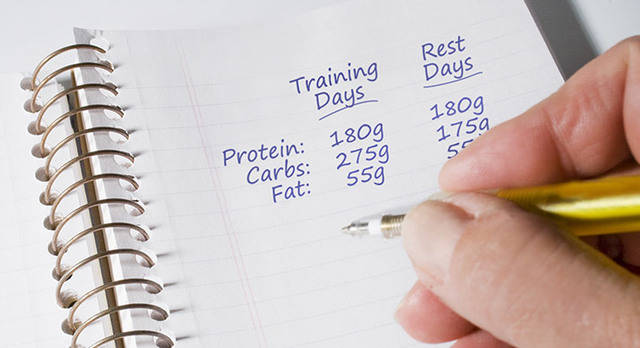 Training Days
Rest Days
Protein: 180g 180g
Carbs: 275g 175g
Fat: 55g